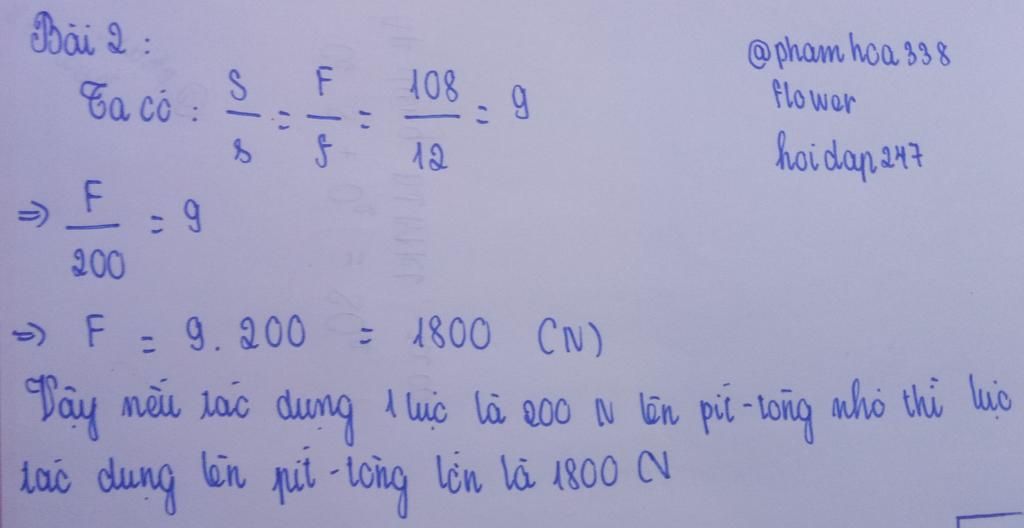 Bài 2 :
@phamhoa338
flower
hoidap247
Ta có : S/s = F/f = 108/12 = 9
=> F/200 = 9
=> F = 9.200 = 1800 (N)
Vậy nếu tác dụng 1 lực là 200 N lên pít-tông nhỏ thì lực
tác dụng lên pít-tông lớn là 1800 N